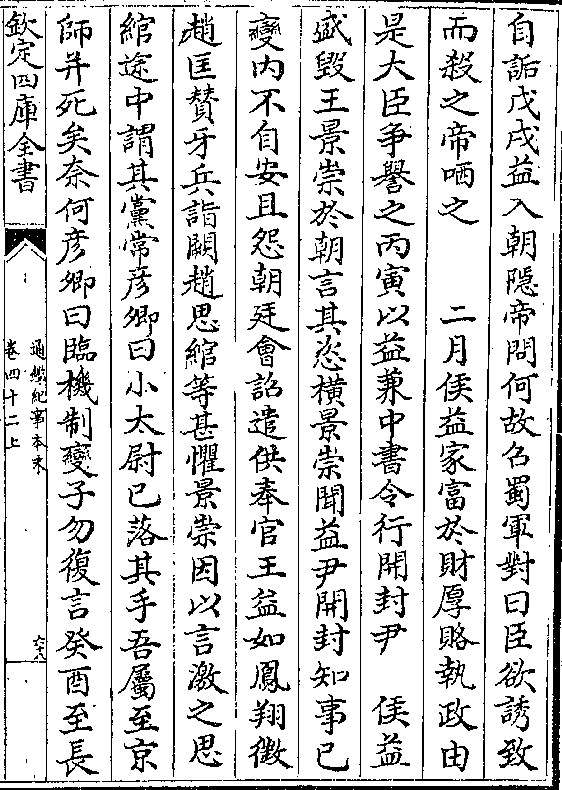 自詬戊戌益入朝隱帝問何故召蜀軍對曰臣欲誘致
而殺之帝哂之　　二月侯益家富於財厚賂執政由
是大臣争譽之丙寅以益兼中書令行開封尹　侯益
盛毀王景崇於朝言其恣橫景崇聞益尹開封知事已
變内不自安且怨朝廷會詔遣供奉官王益如鳳翔徵
趙匡贊牙兵詣闕趙思綰等甚懼景崇因以言激之思
綰途中謂其黨常彦卿曰小太尉已落其手吾屬至京
師并死矣奈何彦卿曰臨機制變子勿復言癸酉至長
欽定四庫全書
通鑑紀事本末
卷四十二上
六十八